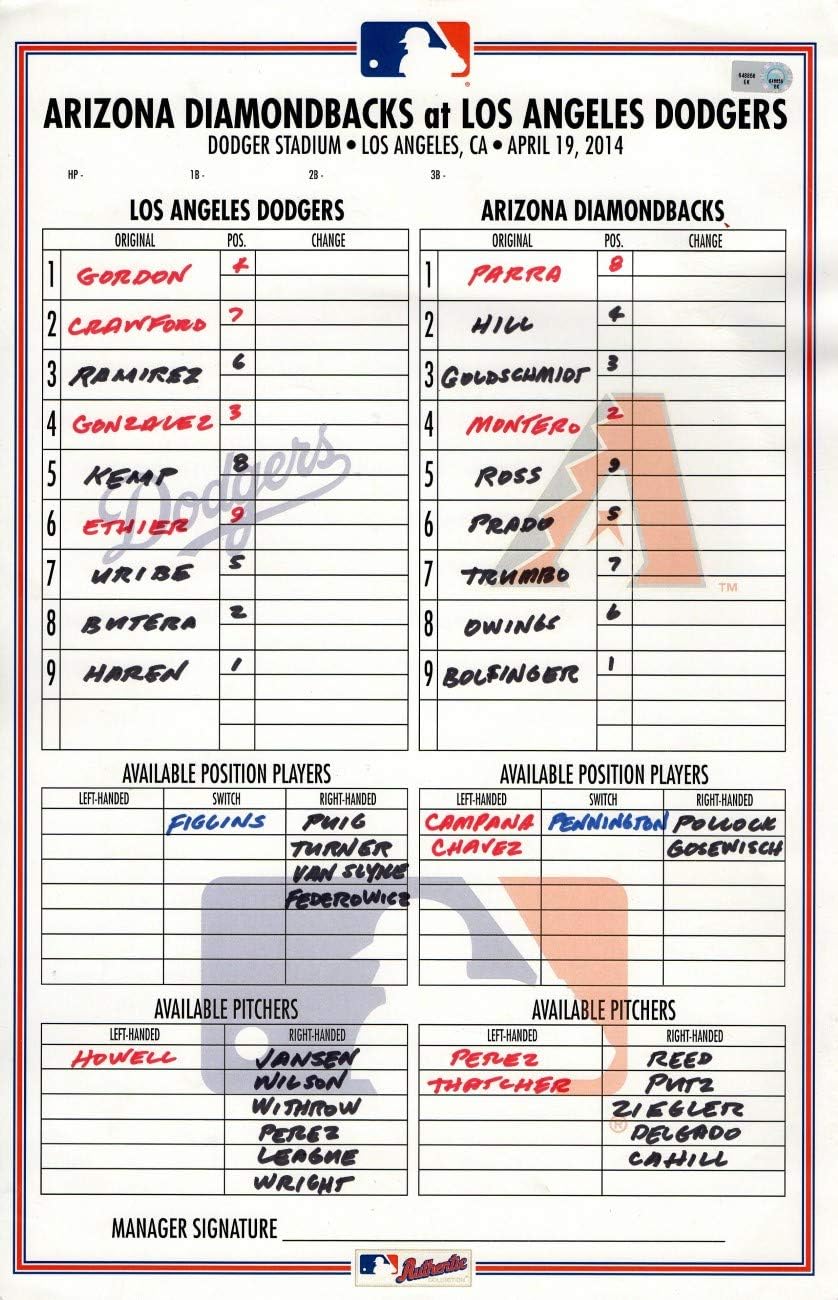 ARIZONA DIAMONDBACKS at LOS ANGELES DODGERS
DODGER STADIUM • LOS ANGELES, CA • APRIL 19, 2014
HP - 1B - 2B - 3B -
LOS ANGELES DODGERS
ORIGINAL POS. CHANGE
1 GORDON 4
2 CRAWFORD 7
3 RAMIREZ 6
4 GONZALEZ 3
5 KEMP 8
6 ETHIER 9
7 URIBE 5
8 BUTERA 2
9 HAREN 1
Dodgers
ARIZONA DIAMONDBACKS
ORIGINAL POS. CHANGE
1 PARRA 8
2 HILL 4
3 GOLDSCHMIDT 3
4 MONTERO 2
5 ROSS 9
6 PRADO 5
7 TRUMBO 7
8 OWINGS 6
9 BOLFINGER 1
TM
AVAILABLE POSITION PLAYERS
LEFT-HANDED SWITCH RIGHT-HANDED
FIGGINS PUIG
TURNER
VAN SLYKE
FEDEROWICZ
AVAILABLE POSITION PLAYERS
LEFT-HANDED SWITCH RIGHT-HANDED
CAMPANA PENNINGTON POLLOCK
CHAVEZ GOSEWISCH
AVAILABLE PITCHERS
LEFT-HANDED RIGHT-HANDED
HOWELL JANSEN
WILSON
WITHROW
PEREZ
LEAGUE
WRIGHT
AVAILABLE PITCHERS
LEFT-HANDED RIGHT-HANDED
PEREZ REED
THATCHER PUTZ
ZIEGLER
DELGADO
CAHILL
MANAGER SIGNATURE
Authentic
COLLECTION